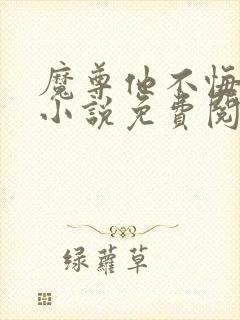 魔尊他不悔
小說免費閱
绿蘿草